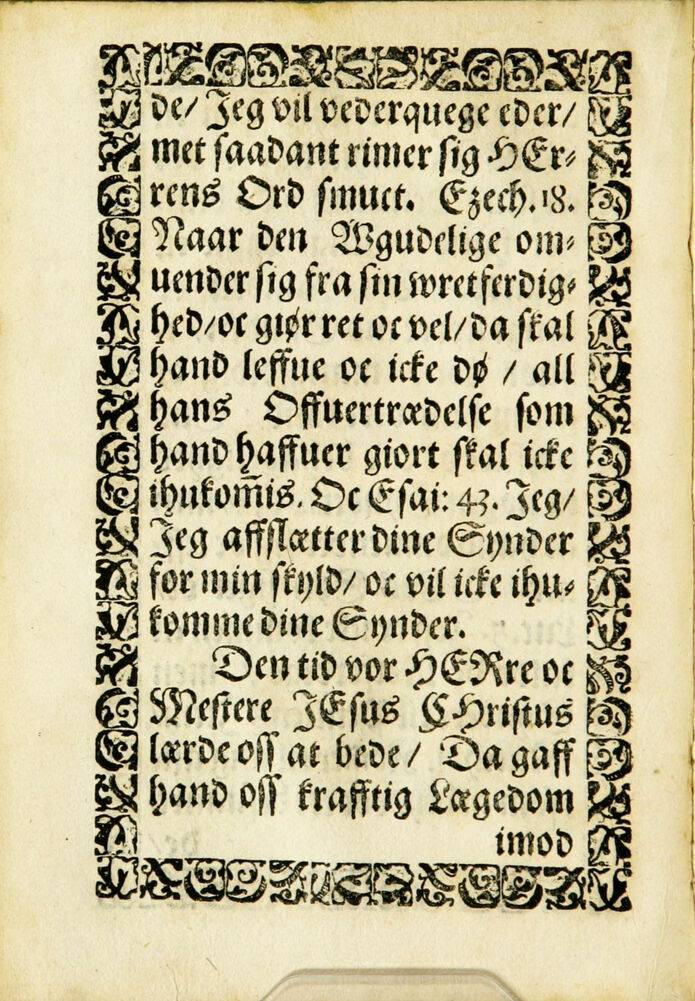 de/ Jeg vil vederquege eder/
met saadant rimer sig HEr⸗
rens Ord smuct. Ezech. 18.
Naar den Wgudelige om⸗
uender sig fra sin wretferdig⸗
hed/ oc giør ret oc vel/ da skal
hand leffue oc icke dø / all
hans Offuertrædelse som
hand haffuer giort skal icke
ihukom̃is. Oc Esai: 43. Jeg/
Jeg affslætter dine Synder
for min skyld/ oc vil icke ihu⸗
komme dine Synder.
Den tid vor HERre oc
Mestere JEsus CHristus
lærde oss at bede / Da gaff
hand oss krafftig Lægedom
imod